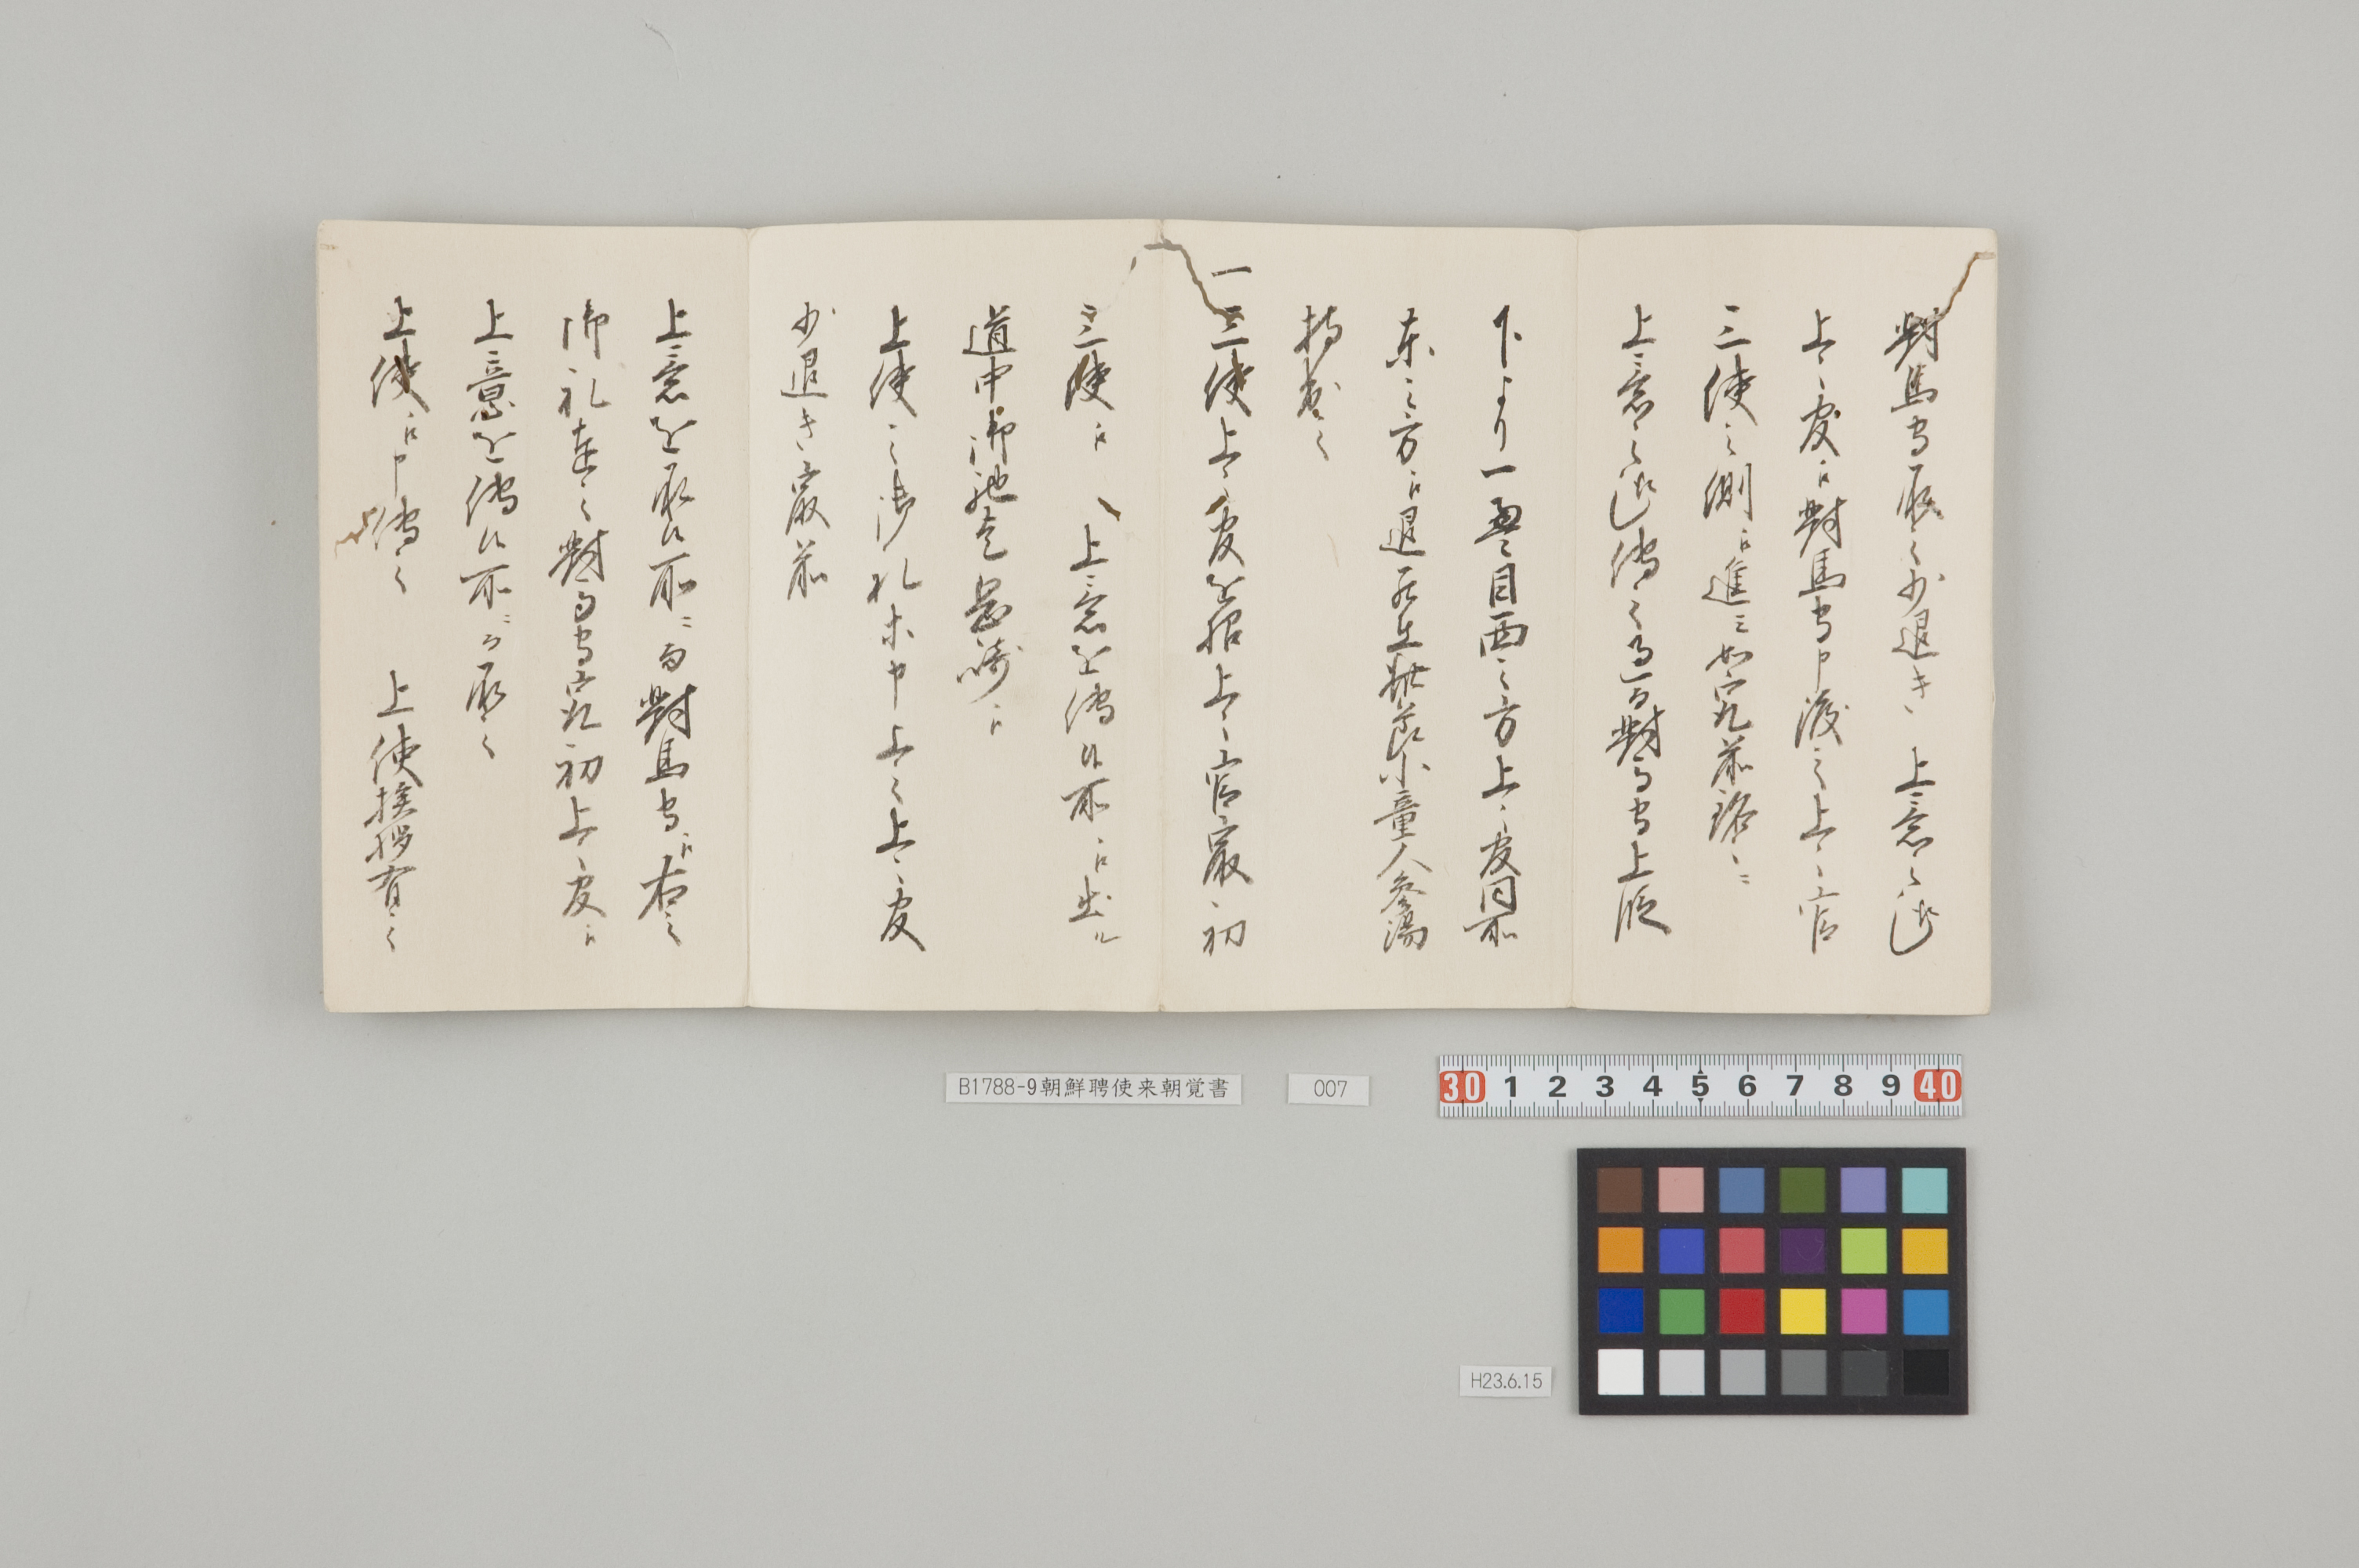 對馬守承之少退き 上意之趣
上々官江對馬守申渡之上々官
三使之側江進ミ如最前路ニ
上意之趣傳之過而對馬守上段
下より一畳目西之方上々官同所
東之方江退
小童人参湯
持出之
一三使上々官を招上々官最初
三使江 上意を傳候所江出ル
道中御馳走
上使之御礼等申上之上々官
少退き最前
上意を承候所ニ而對馬守江右之
御礼達之對馬守最初上々官江
上意を傳候所ニ而承之
上使江申傳之 上使挨拶有之
B1788-9朝鮮聘使来朝覚書
007
30 1 2 3 4 5 6 7 8 9 40
H23.6.15